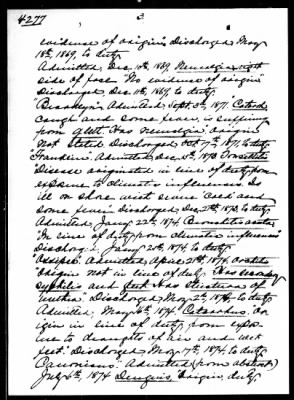 4277
3
evidence of origin". Discharged, May
18th, 1869, to duty.
Admitted, Dec. 10th, 1869, Neuralgia, right
side of face. "No evidence of origin"
Discharged, Dec. 11th, 1869, to duty.
"Brooklyn", Admitted, Sept. 3d, 1871, Catarrh
cough and some fever, is suffering
from gleet. Has neuralgia, origin
not stated. Discharged, Oct. 7th, 1871, to duty.
"Franklin", Admitted, Dec. 15th, 1873
Disease originated in line of duty, from
exposure to climatic influences. Is
ill on shore with severe cold and
some fever. Discharged, Dec. 1873, to duty.
Admitted, January 22d, 1874, Bronchitis acuta
"In line of duty, from climatic influences"
Discharged, January 1874, to duty.
"Ossipee", Admitted, April 21st, 1874,
"Origin not in line of duty. Has secondary
syphilis and gleet. Has stricture of
urethra". Discharged, May 2d, 1874, to duty.
Admitted, May 1874, Catarrhus. Or-
igin in line of duty, from expo-
sure to draughts of air and wet
feet". Discharged, May 17th, 1874, to duty.
"Canonicus". Admitted (from abstract)
July 6th, 1874 Dengue, origin, duty.